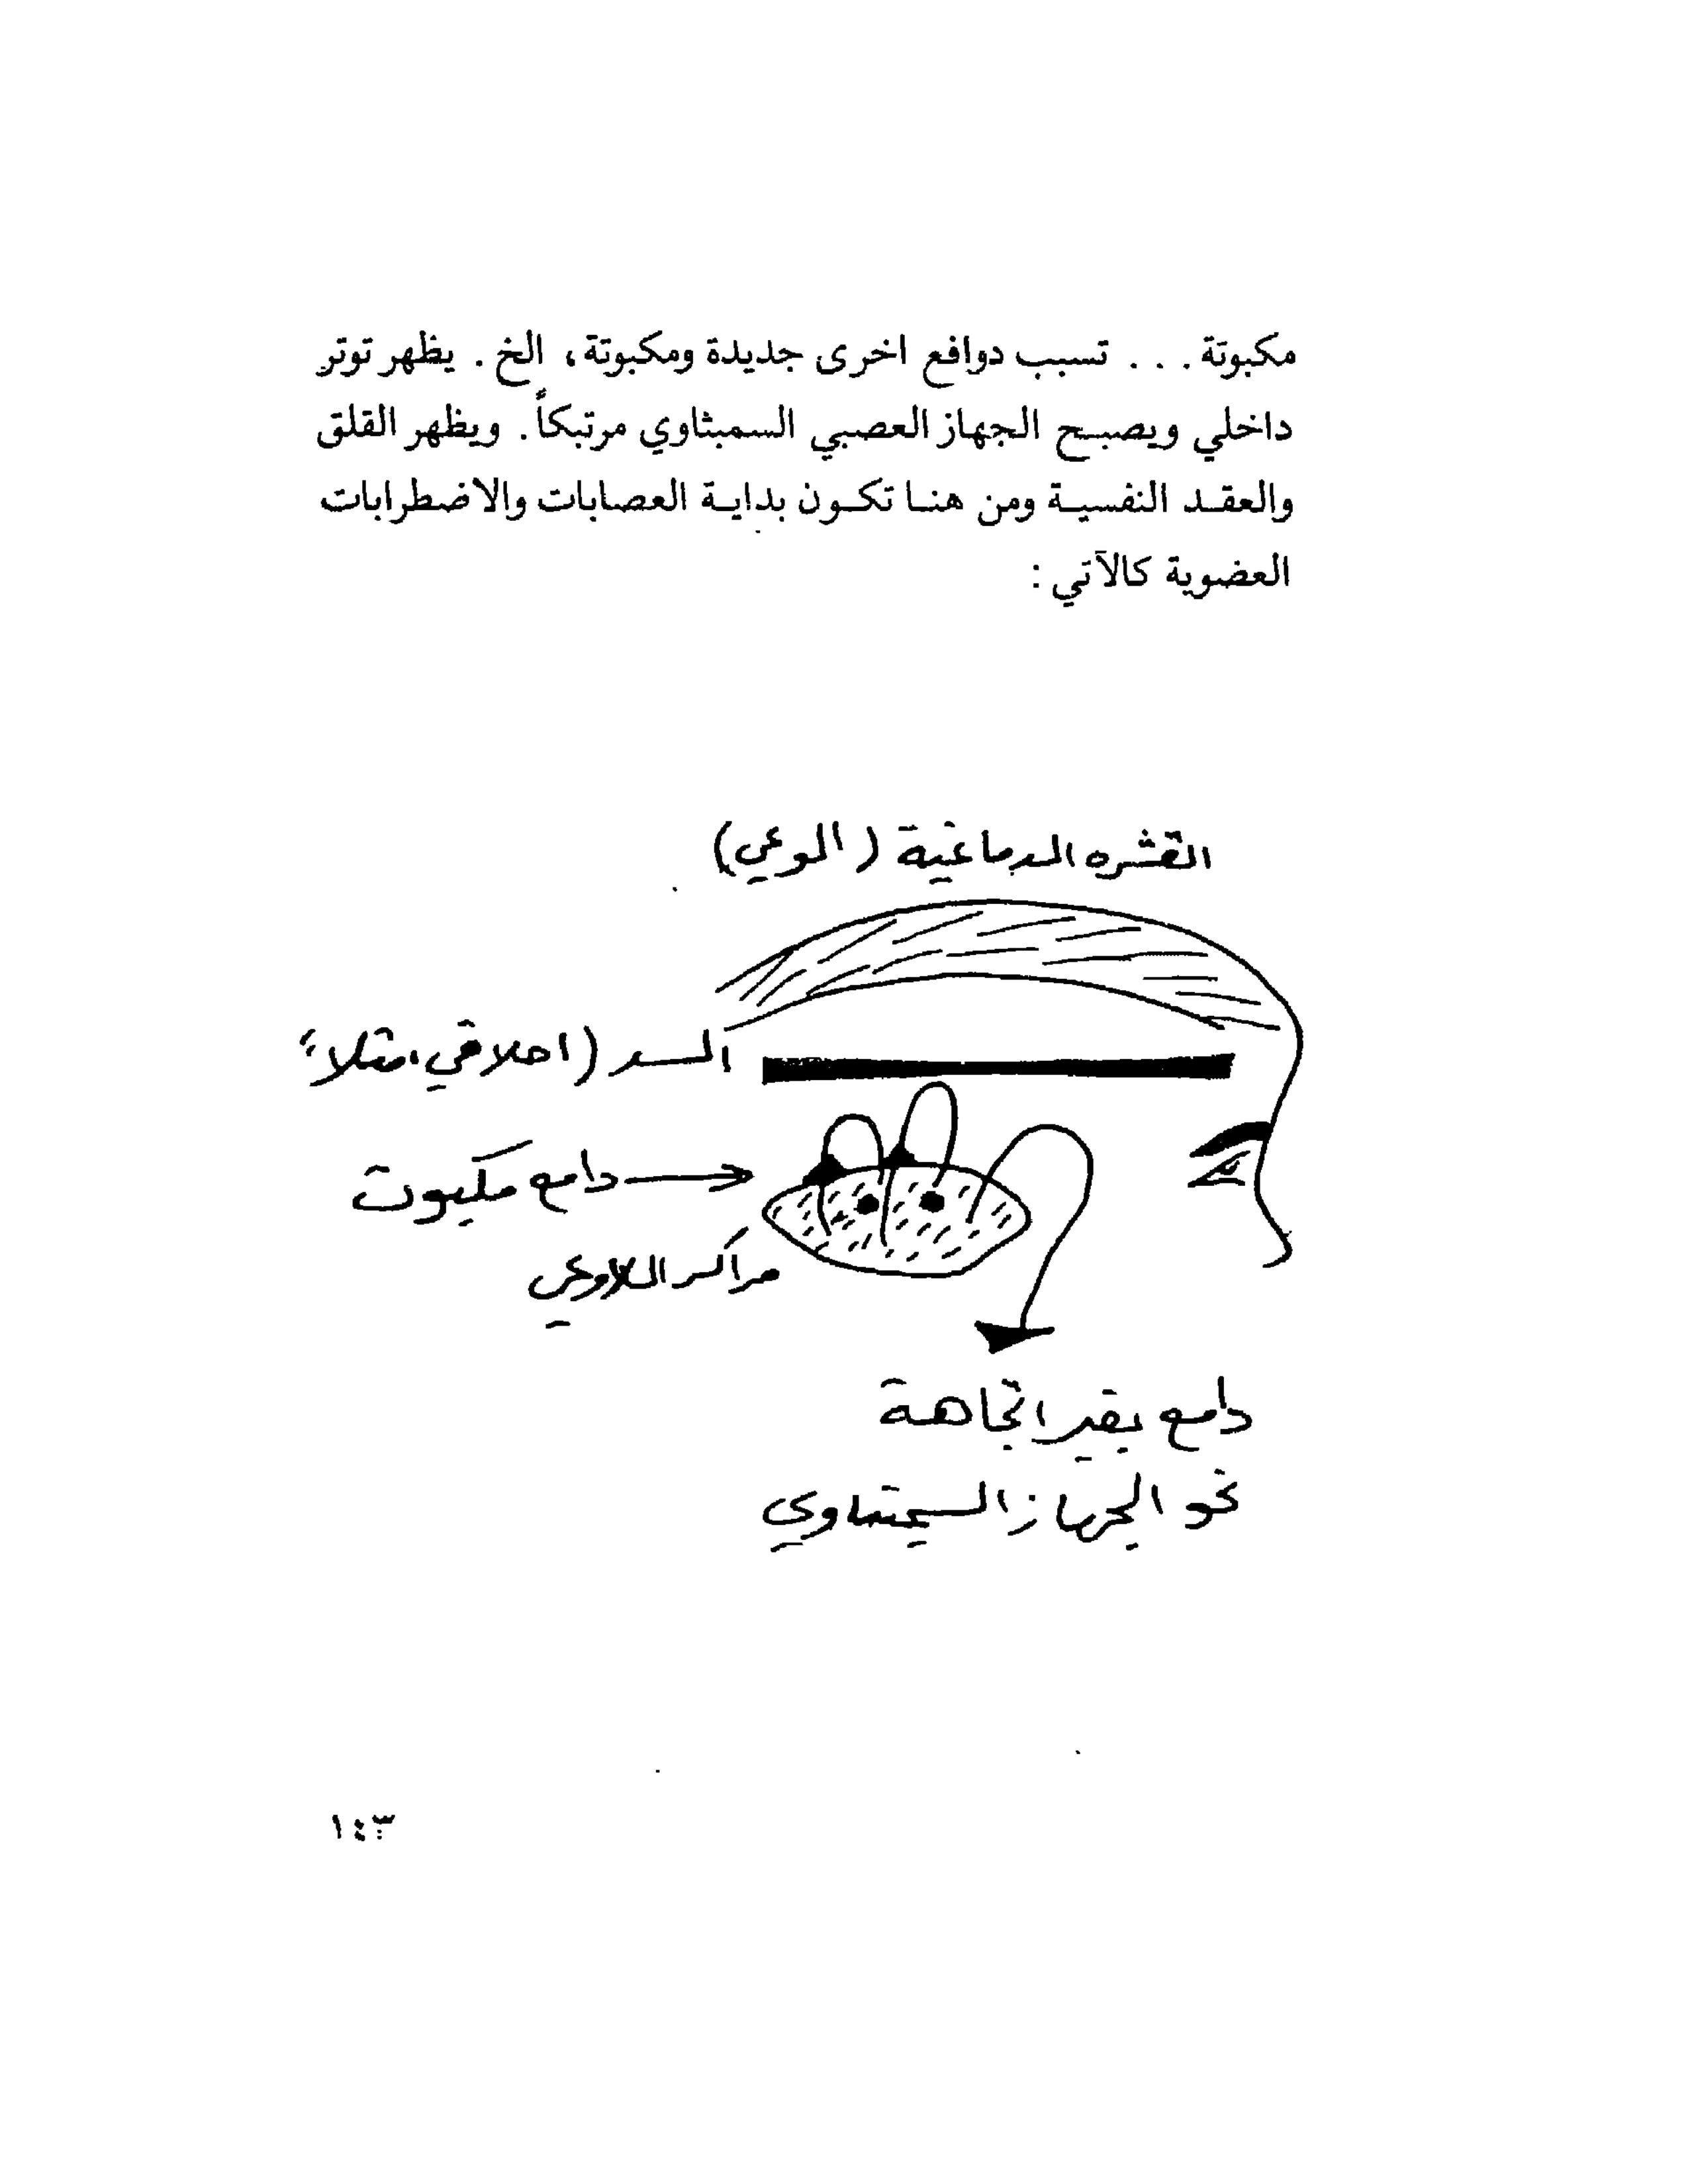 مكبوتة . . . تسبب دوافع اخرى جديدة ومكبوتة، الخ . يظهر توتر
داخلي ويصبح الجهاز العصبي السمبثاوي مرتبكاً. ويظهر القلق
والعقد النفسية ومن هنا تكون بداية العصابات والاضطرابات
العضوية كالآتي :
القشره الدماغية (الوعي)
السد (اخلاقي مثلاً
دافع مكبوت
مراكز اللاوعي
دافع يغير اتجاهة
نحو الجهاز السمبثاوي
١٤٣